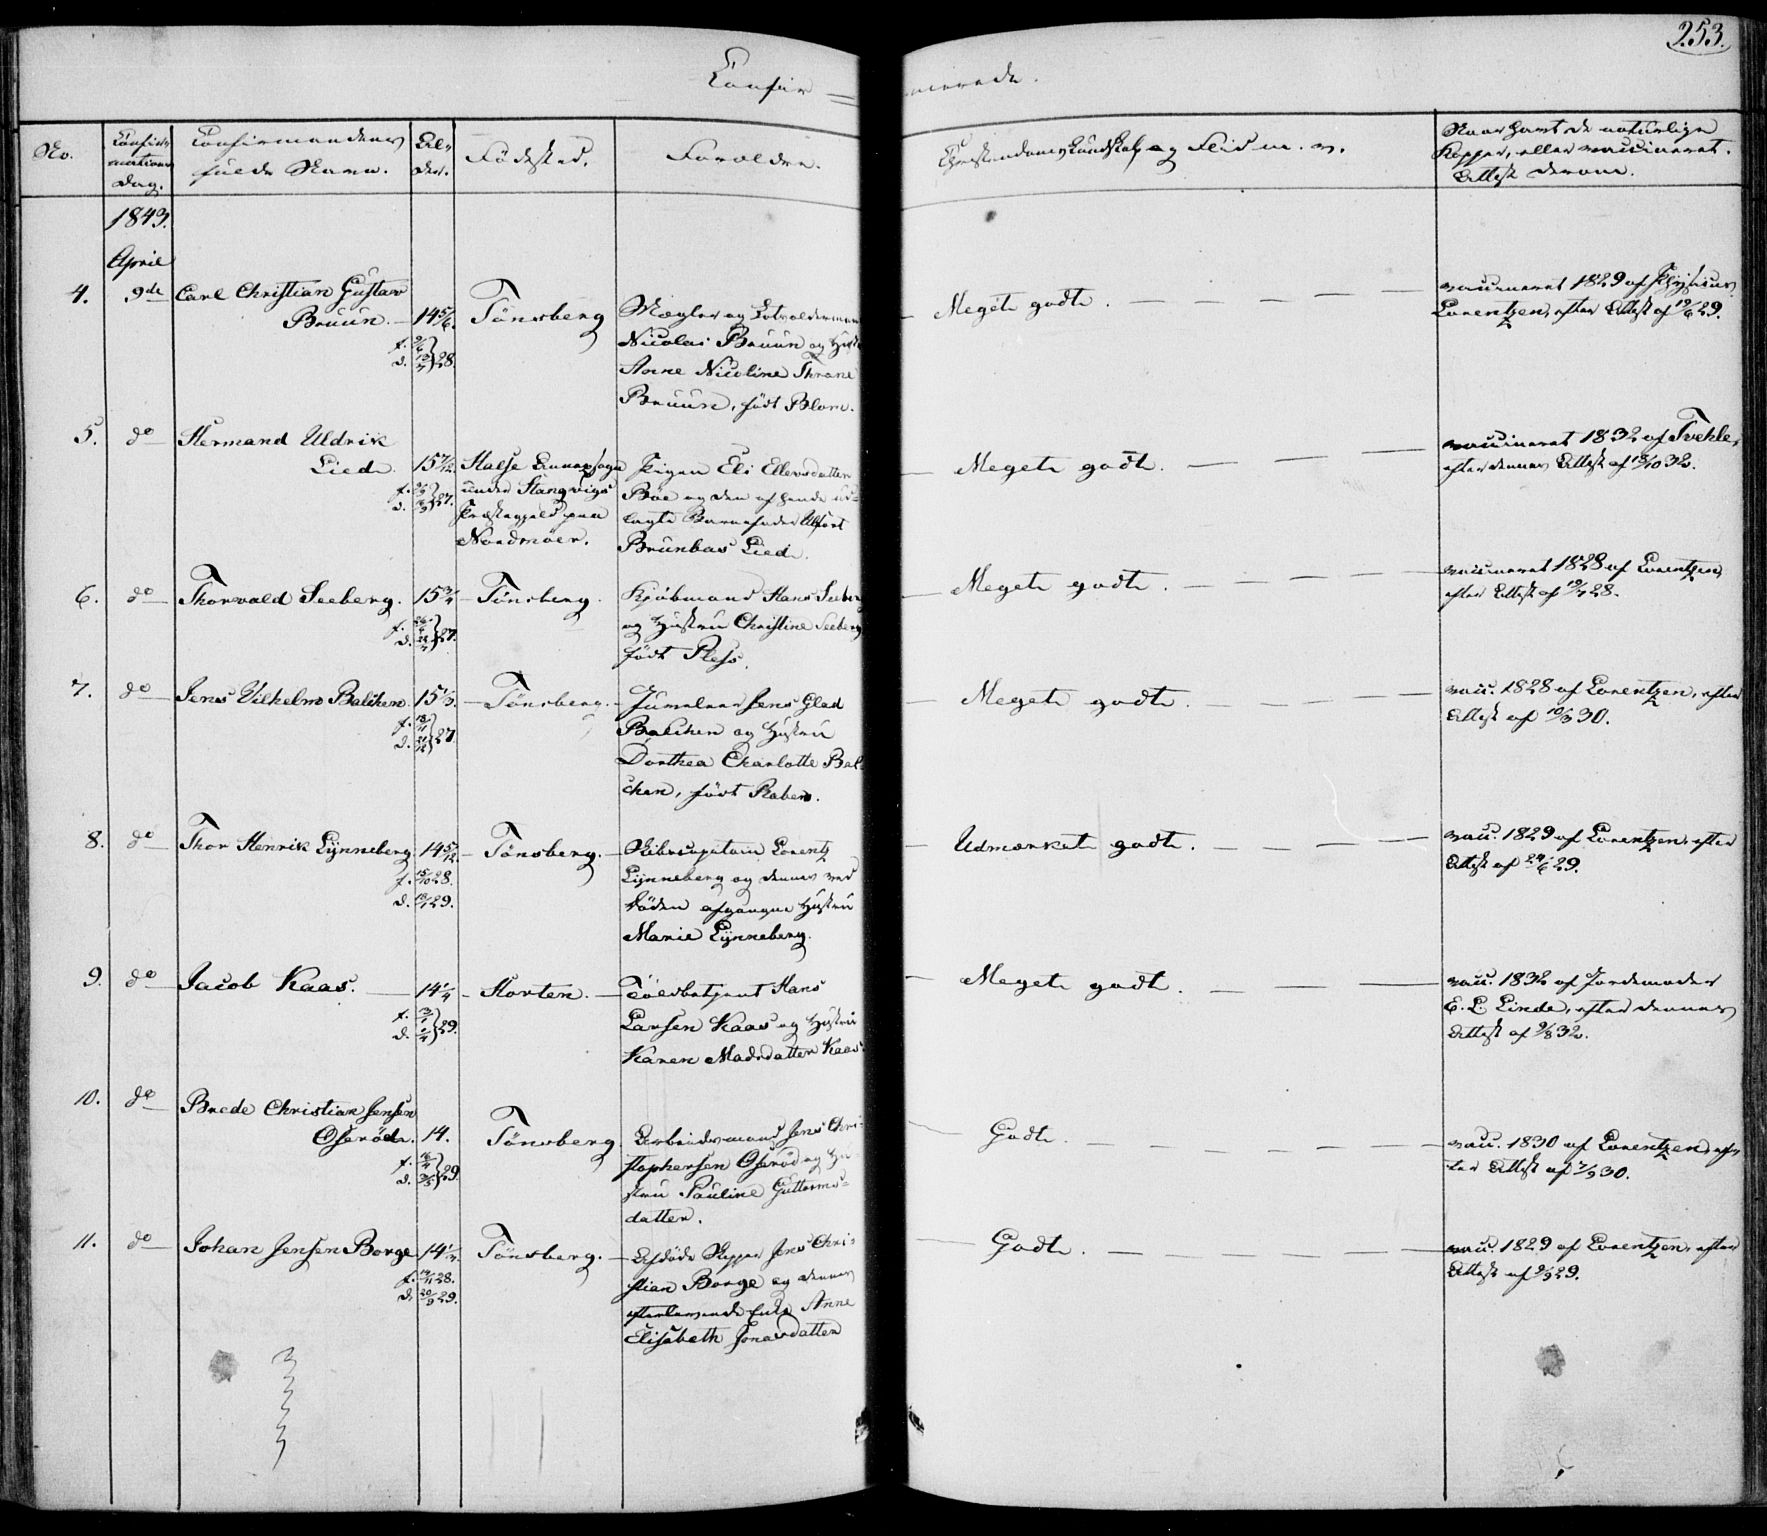 253.
Confir = merede.
No.
Confir-
mations
Dag.
Confirmandens
fulde Navn.
Al-
der.
Fødested.
Forældre.
Christendoms Kundskab og Flid m. v.
Naar havt de naturlige
Kopper, eller vaccineret.
Attest derom.
1843.
April
4. 9de Carl Christian Gustav
Bruun. — 14 5/6. Tönsberg
28.
Mægler og
Nicolai Bruun og
Anne Nicoline Thrane
Bruun, født Blom.
Meget godt.
vaccineret 1829 af Physicus
Lorentzen, efter Attest af 19/6 29.
5. do Hermand Uldrik
Lied. 15 7/12.
27.
Halse Annexsogn
under Stangvigs
Præstegjeld paa
Nordmöer.
Pigen Eli Ellevsdatter
Böe og den af hende ud-
lagte Barnefader
Lied.
Meget godt.
vaccineret 1832 af Tvehle,
efter dennes Attest af 13/10 32.
6. do Thorvald Seeberg. 15 3/4 — Tönsberg.
27.
Kjöbmand Hans Seeberg
og Hustru Christine Seeberg
født Pless.
Meget godt.
vaccineret 1828 af Lorentzen,
efter Attest af 19/7 28.
7. do Jens Vilhelm Balchen 15 1/3. — Tönsberg.
27.
Juveleer Jens Glad
Balchen og Hustru
Dorthea Charlotte Bal-
chen, født Raben.
Meget godt.
vacc. 1828 af Lorentzen, efter
Attest af 10/3 30.
8. do Thor Henrik Lynneberg 14 5/12 — Tönsberg.
f. 15/10 28.
d. 29.
Skibscapitain Lorentz
Lynneberg og dennes ved
Döden afgangne Hustru
Marie Lynneberg.
Udmærket godt.
vacc. 1829 af Lorentzen, efter
Attest af 24/6 29.
9. do Jacob Kaas. — 14 1/4 — Horten.
29.
Toldbetjent Hans
Larsen Kaas og Hustru
Karen Madsdatter Kaas.
Meget godt.
vacc. 1832 af Jordemoder
E. L. Linde, efter dennes
Attest af 9/8 32.
10. do Brede Christian Jensen
Oseröd. 14. Tönsberg
29.
Arbeidsmand Jens Chri-
stophersen Oseröd og Hu-
stru Pauline Guttorms-
datter.
Godt.
vacc. 1830 af Lorentzen, ef-
ter Attest af 7/9 30.
11. do Johan Jensen Borge 14 1/2. Tönsberg.
f. 28.
d. 20/3 29.
Afdöde Skipper Jens Chri-
stian Borge og dennes
efterlevende Enke Anne
Elisabeth Jonasdatter
Godt.
vacc. 1829 af Lorentzen, efter
Attest af 9/9 29.